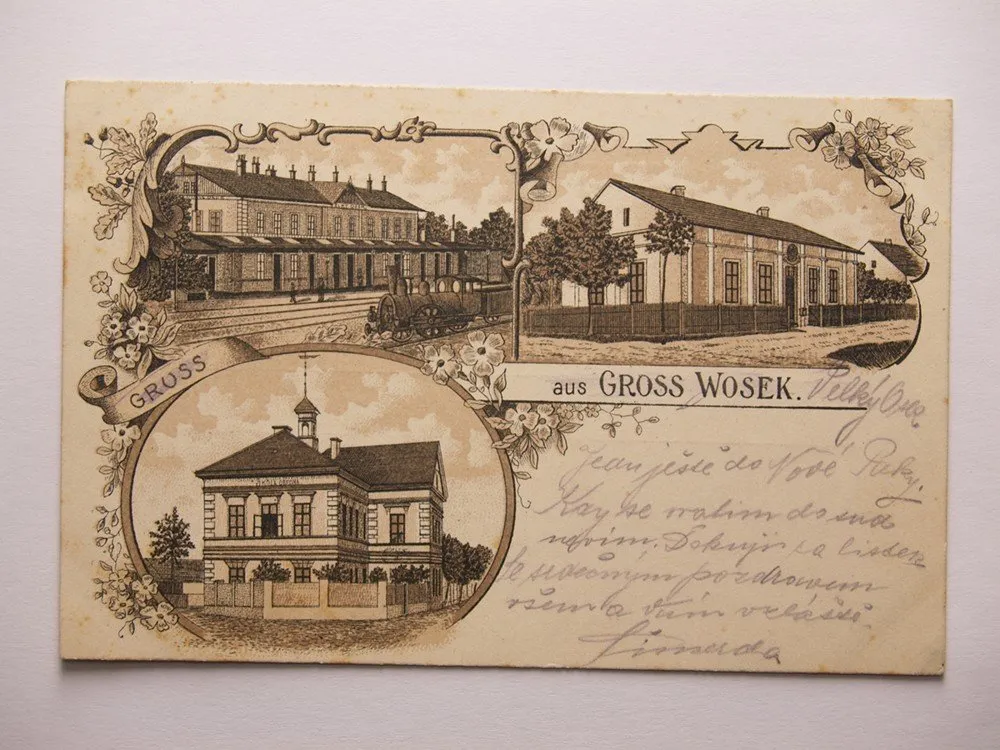 GRUSS
aus GROSS WOSEK.
Velký Osek
Jedu ještě do Nové Paky.
Kdy se vrátím dosud
nevím. Děkuji za lístek
Se srdečným pozdravem
všem a Vám zvláště.
Šimerda